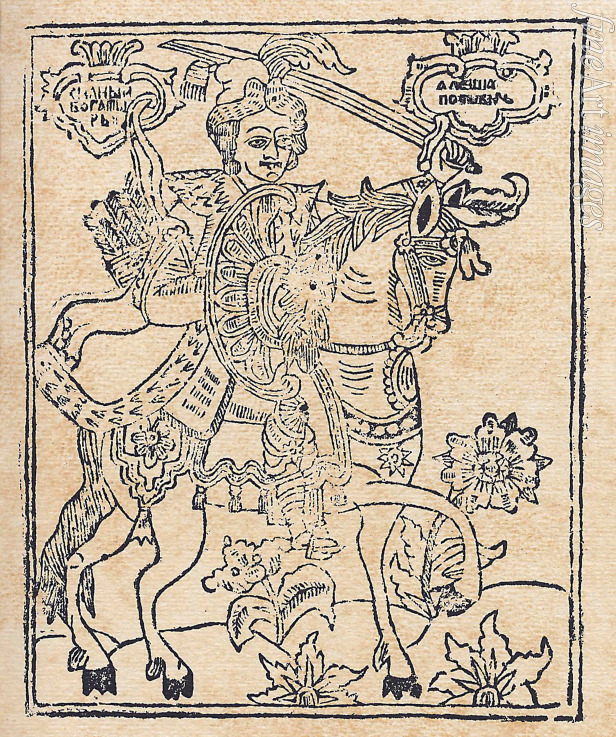 СИЛНЫЙ
БОГАТЫ
РЬ
АЛЕША
ПОПОВИЧЬ
FineArtImages